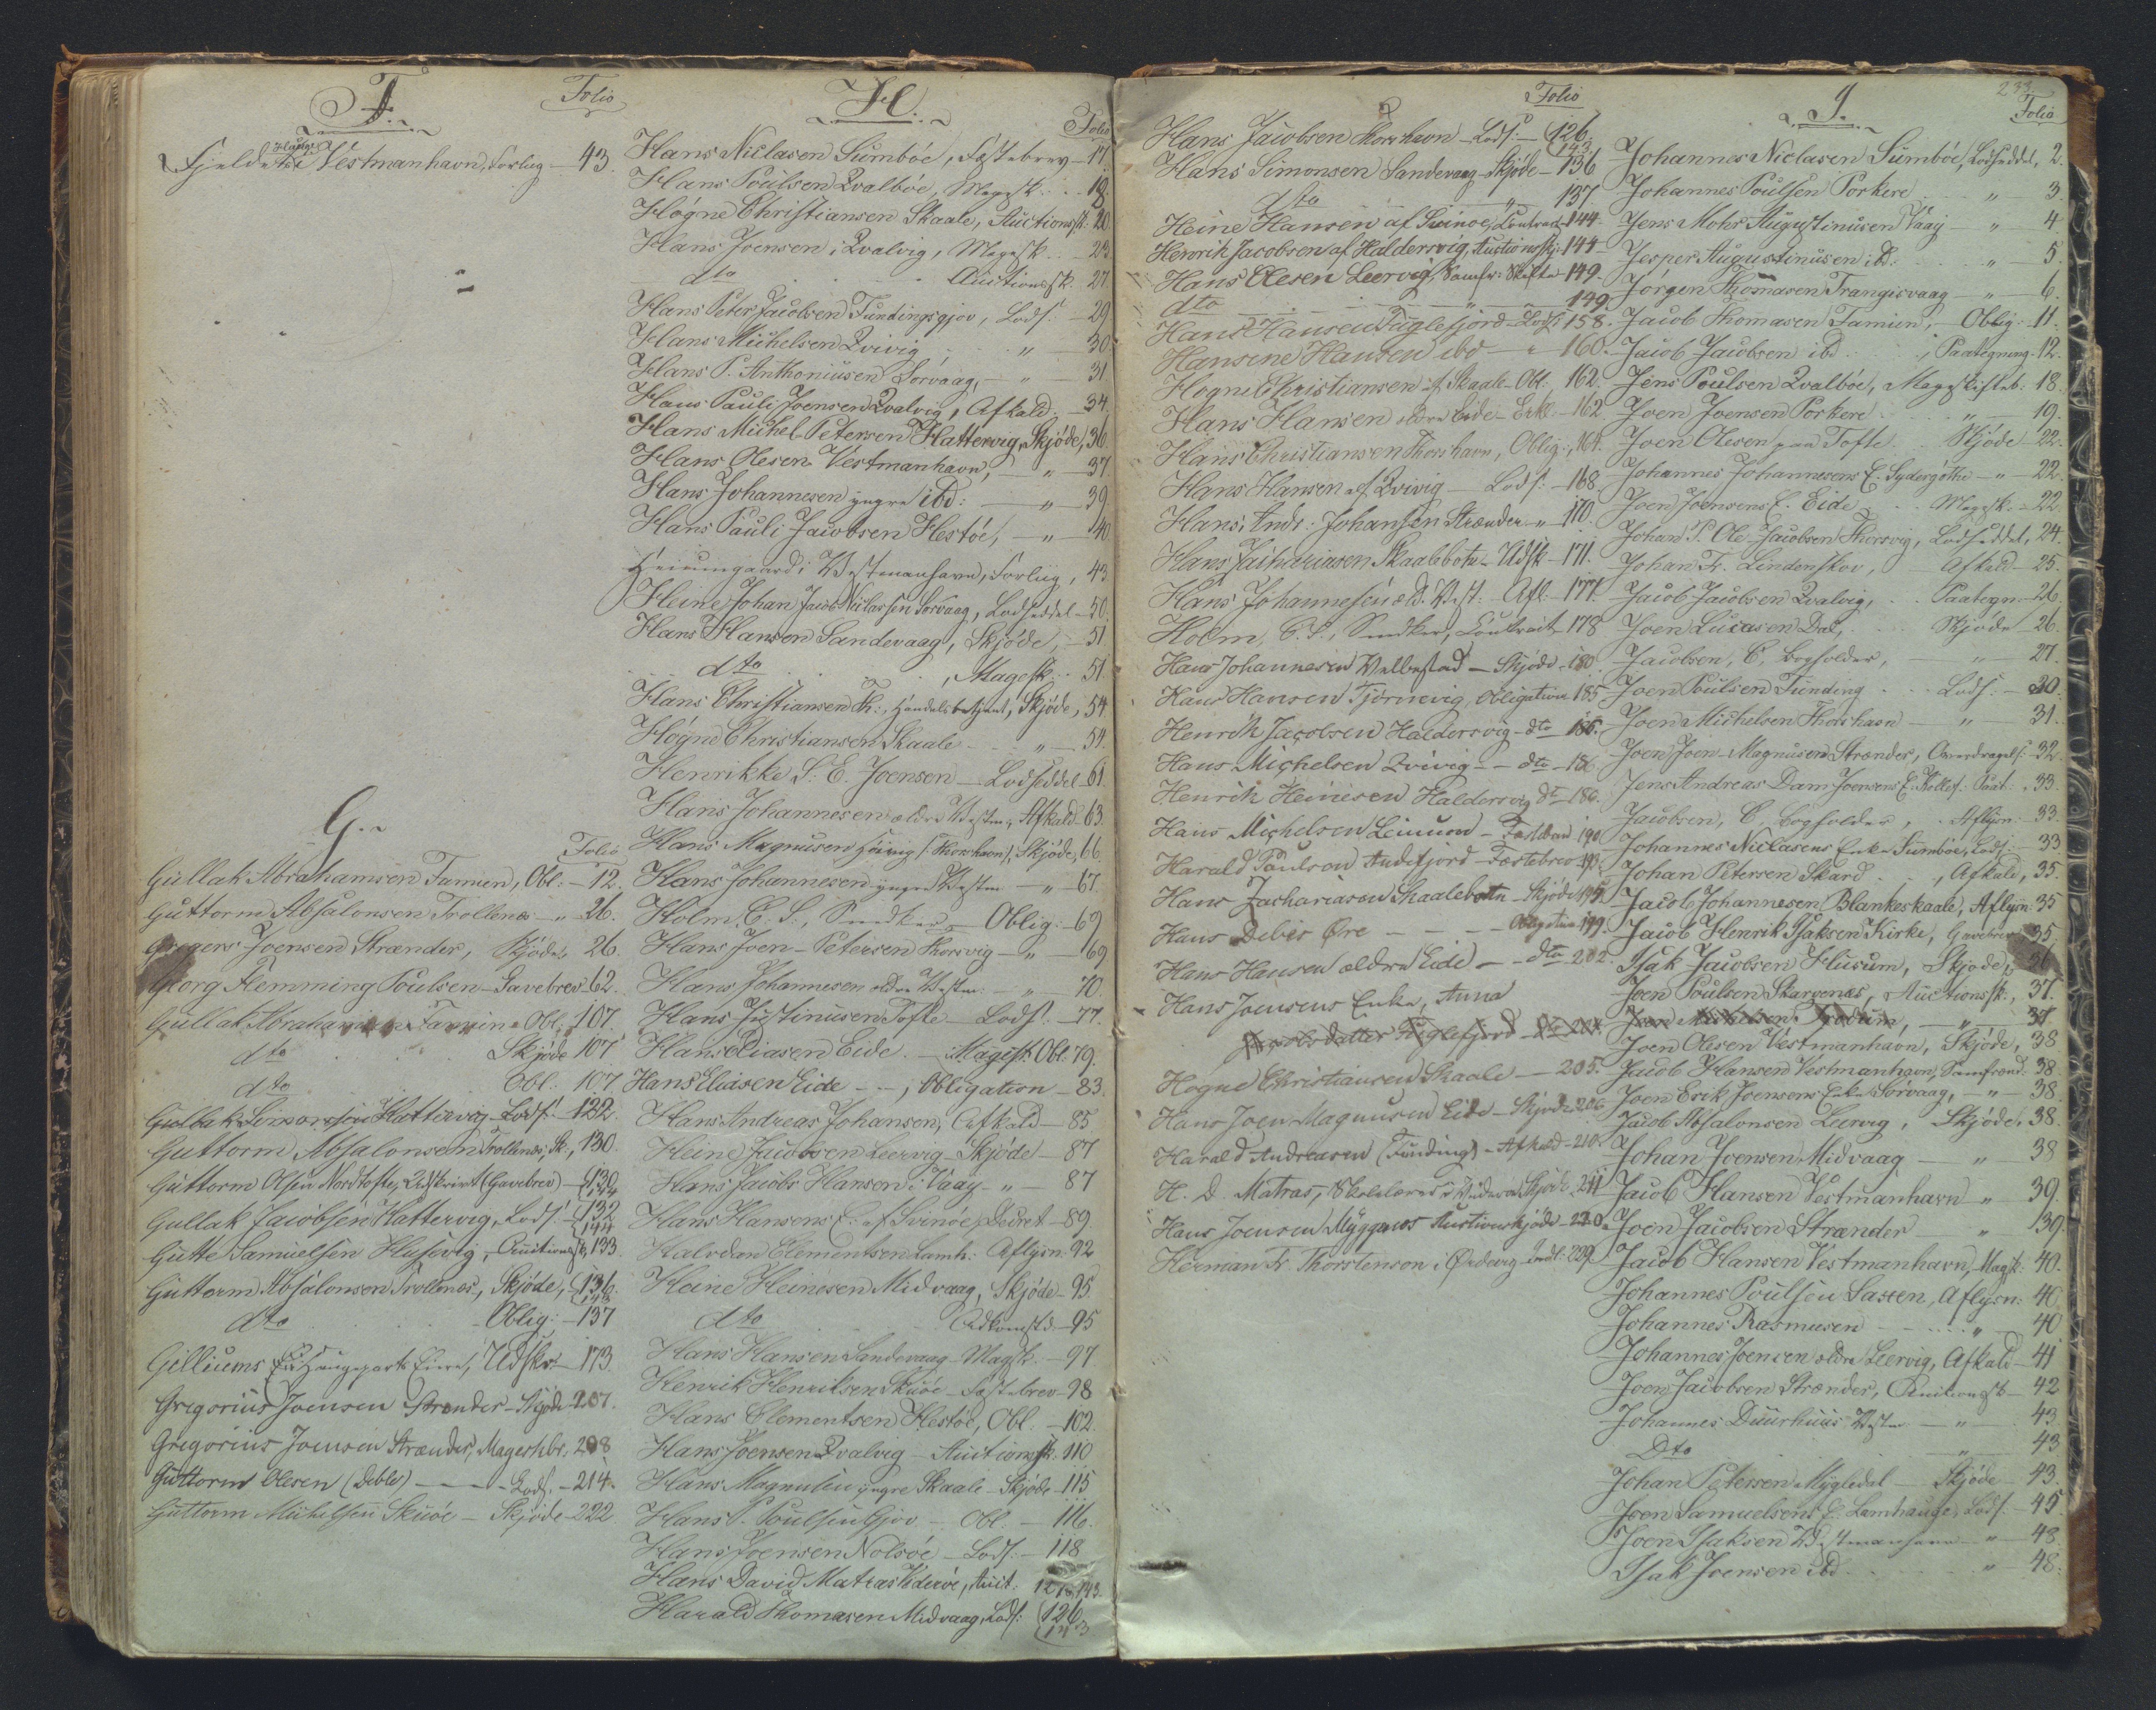 F.
Folio
Fjeldets i Vestmanhavn, Forlig - 43.
G.
Folio
Gullak Abrahamsen Famien, Obl: - 12.
Guttorm Absalonsen Trollenæs - " 26.
Gregers Joensen Strænder, Skjøde, 26.
Georg Flemming Poulsen - Gavebrev - 62.
Gullak Abrahamsen Famien - Obl. 107.
dto Skjøde 107
dto Obl: 107
Gullak Simonsen Hattervig - Lods: - 122.
Guttorm Absalonsen Trollenæs, Sk., 130.
Guttorm Olsen Nordtofte, Udskrivt (Gavebrev) - 130
144
Gullak Jacobsen Hattervig, Lods: 132
144
Gutte Samuelsen Husevig, Auctionssk. 133
Guttorm Absalonsen Trollenæs, Skjøde, 136.
143
dto Oblig: - 137
Gilliums Haugeparts Eiere, Udskr. - 173.
Gregorius Joensen Strænder - Skjøde - 207.
Gregorius Joensen Strænder, Mageskbr. 208
Guttorm Olesen (Deble) - Lods. - 214.
Guttorm Michelsen Skuøe - Skjøde - 222
H.
Folio
Hans Niclasen Sumbøe, Fæstebrev - 17.
Hans Poulsen Qvalbøe, Magesk. - 18.
Høgne Christiansen Skaale, Auctionssk: 20
Hans Joensen i Qvalvig, Magesk. - 23
dto Auctionssk. 27.
Hans Peter Jacobsen Fundingsgjov, Lods: - 29
Hans Michelsen Qvivig " - 30
Hans P. Anthoniusen Sorvaag, - " - 31
Hans Pauli Joensen Qvalvig, Afkald. - 34.
Hans Michel Petersen Hattervig, Skjøde, 36.
Hans Olesen Vestmanhavn, - " - 37
Hans Johannesen yngre ibd: - " - 39.
Hans Pauli Jacobsen Hestøe, - " - 40.
i Vestmanhavn, Forliig, 43
Heine Johan Jacob Niclassen Sorvaag, Lodseddel - 50.
Hans Hansen Sandevaag, Skjøde, - 51.
dto, Magesk: 51.
Hans Christiansen Th:, Handelsbetjent, Skjøde, 54.
Høgne Christiansen Skaale " - 54.
Henrikke S. E. Joensen - Lodseddel 61.
Hans Johannesen ældre Vestm., Afkald 63.
Hans Magnusen Høivig (Thorshavn), Skjøde, 66.
Hans Johannesen yngre Vestm - " - 67.
Holm, C. S., Snedker - Oblig: - 69
Hans Joen - Petersen Thorsvig - " - 69
Hans Johannesen ældre Vestm: - " - 70.
Hans Justinusen Tofte - Lods. - 77.
Hans Eliasen Eide - Magesk. Obl. 79.
Hans Eliasen Eide - -, Obligation - 83.
Hans Andreas Johansen, Afkald - 85.
Heine Jacobsen Leervig - Skjøde - 87
Hans Jacob Hansen i Vaag - " - 87
Hans Hansens E. af Svinøe, Decret - 89.
Halvdan Clementsen Lamh: Aflysn: 92
Heine Heinesen Midvaag, Skjøde - 95.
dto Adkomstd. - 95
Hans Hansen Sandevaag - Magesk. - 97
Henrik Henriksen Skuøe - Fæstebrev - 98
Hans Clementsen Hestøe, Obl. - 102.
Hans Joensen Qvalvig - Auctionssk: 110
Hans Magnussen yngre Skaale - Skjøde - 115
Hans P. Poulsen Gjov - Obl. - 116.
Hans Joensen Nolsøe - Lods: - 118
Hans David Matras Viderøe, Auct: 126, 143.
Harald Thomasen Midvaag, Lods: 126
143
Folio
Hans Jacobsen Thorshavn - Lods: - 126.
143
Hans Simonsen Sandevaag - Skjøde - 136
dto " 137
Heine Hansen af Svinøe, Contract - 144.
Henrik Jacobsen af Haldersvig, Auctionsskj: 144
Hans Olesen Leervig, Samfr. Skifte - 149.
dto " 149.
Hans Hansen Fuglefjord - Lods: 158.
Hansine Hansen ibd - " 160.
Høgne Christiansen af Skaale - Obl: 162.
Hans Hansen ældre Eide - Erkl - 162
Hans Christiansen Thorshavn, Oblig:, 164.
Hans Hansen af Qvivig - Lods: - 168.
Hans Andr: Johansen Strænder - " 170.
Hans Zachariasen Skaalebotn - Udsk - 171.
Hans Johannesen æld. Vest: Afl. - 177.
Holm, C. S., Snedker, Contract 178
Hans Johannesen Velbestad - Skjøde - 180.
Hans Hansen Tjørnevig, Obligation 185
Henrik Jacobsen Haldersvig - dto - 186.
Hans Michelsen Qvivig - dto - 186
Henrik Heinesen Haldersvig dto 186.
Hans Michelsen Leinum - Fæstebrev 190
Harald Poulsen Andefjord - Fæstebrev 191.
Hans Zachariasen Skaalebotn - Skjøde 194.
Hans Debis Øre - - - Obligation 199.
Hans Hansen ældre Eide - dto - 202.
Hans Joensens Enke, Anna
datter Fuglefjord
Høgne Christiansen Skaale - 205.
Hans Joen Magnusen Eide - Skjøde 206
Harald Andreasen (Funding) - Afkald - 210.
H. D. Matras, Skolelærer i Viderø Skjøde - 211
Hans Joensen Myggenæs Auctionsskjøde - 220
Herman Fr. Thorstenson i Ørdevig Indl: 229.
233.
J.
Folio
Johannes Niclasen Sumbøe, Lodseddel, 2.
Johannes Poulsen Porkere " 3.
Jens Mohr Augustinusen Vaag - " 4
Jesper Augustinusen ibd. " - 5.
Jørgen Thomasen Trangisvaag - " - 6.
Jacob Thomasen Famien, - Oblig: 11.
Jacob Jacobsen ibd., Paategning. 12.
Jens Poulsen Qvalbøe, Mageskifteb: 18.
Joen Joensen Porkere " 19.
Joen Olesen paa Tofte Skjøde 22.
Johannes Johannesens E. Sydergøthe - " - 22.
Joen Joensens E. Eide Magesk. - 22
Johan P. Ole Jacobsen Thorsvig, Lodseddel, 24.
Johan Fr. Lindenskov, Afkald - 25.
Jacob Jacobsen Qvalvig, Paategn. - 26.
Joen Lucasen Dal, Skjøde - 26.
Jacobsen, C, Bogholder, " 27.
Joen Poulsen Funding Lods: - 30.
Joen Michelsen Thorshavn - " - 31.
Joen Joen-Magnusen Strænder, Overdragels: 32.
Jens Andreas Dam Joensens E. Kollef: Paat:, 33.
Jacobsen, C, Bogholder, Aflysn: 33
Johannes Niclasens Enke Sumbøe, Lods: - 33
Johan Petersen Skard, Afkald, 35.
Jacob Johannesen Blankeskaale, Aflysn: 35
Jacob Henrik Isaksen Kirke, Gavebrev 35.
Isak Jacobsen Husum, Skjøde, 36
Joen Poulsen Skarvenes, Auctionssk., 37.
Joen Michelsen, - " - 37
Joen Olesen Vestmanhavn, Skjøde, 38
Jacob Hansen Vestmanhavn, Samfrend: 38.
Joen Erik Joensens Enke Sørvaag, - " - 38.
Jacob Absalonsen Leervig, Skjøde, 38.
Johan Joensen Midvaag - " 38
Jacob Hansen Vestmanhavn " 39.
Joen Jacobsen Strænder - " 39.
Jacob Hansen Vestmanhavn, Magsk: 40.
Johannes Poulsen Saxen, Aflysn: 40.
Johannes Rasmusen " 40
Johannes Joensen ældre Leervig, Afkald - 41
Joen Jacobsen Strænder, Auctionssk - 42
Johannes Duurhuus Vestm - " - 43.
Dto " 43
Johan Petersen Mygledal - Skjøde - 43.
Joen Samuelsens E. Lamhauge, Lods. - 45.
Joen Isaksen Vestmanhavn - " - 48.
Isak Joensen ibd " - 48.